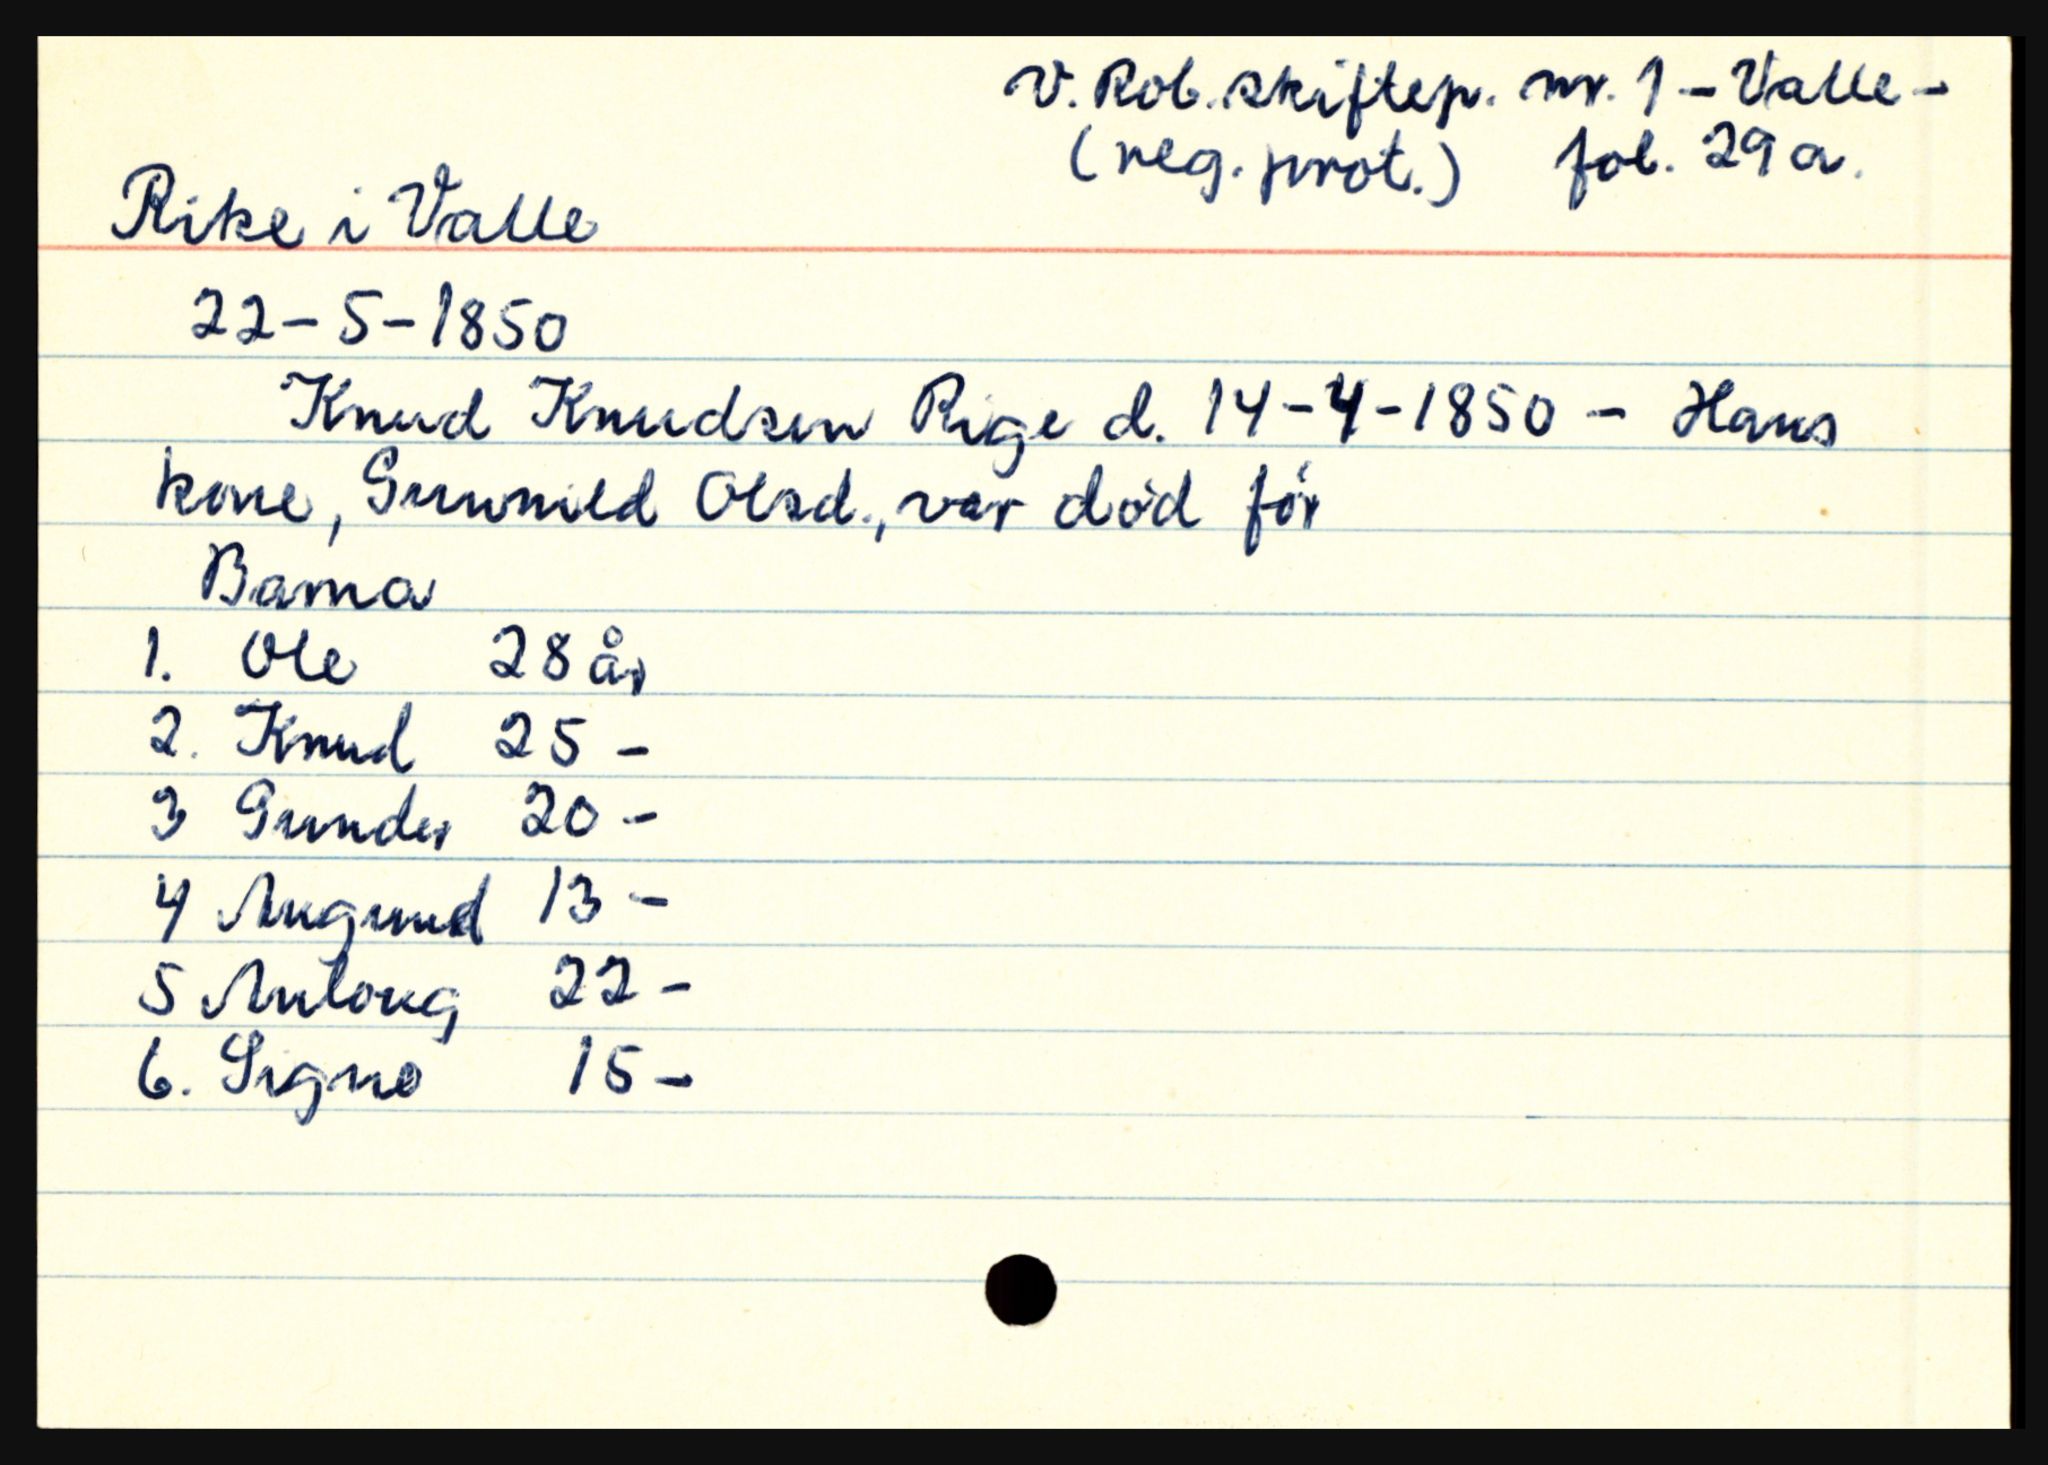 V. Rob. skiftep. nr. 1 - Valle -
(reg. prot.) fol. 29 a.
Rike i Valle
22-5-1850
Knud Knudsen Rige d. 14-4-1850 - Hans
kone, Gunnild Olsd., var død før
Barna
1. Ole 28 år
2. Knud 25 -
3 Gunder 20 -
4 Augund 13 -
5 Anloug 22 -
6. Signe 15 -